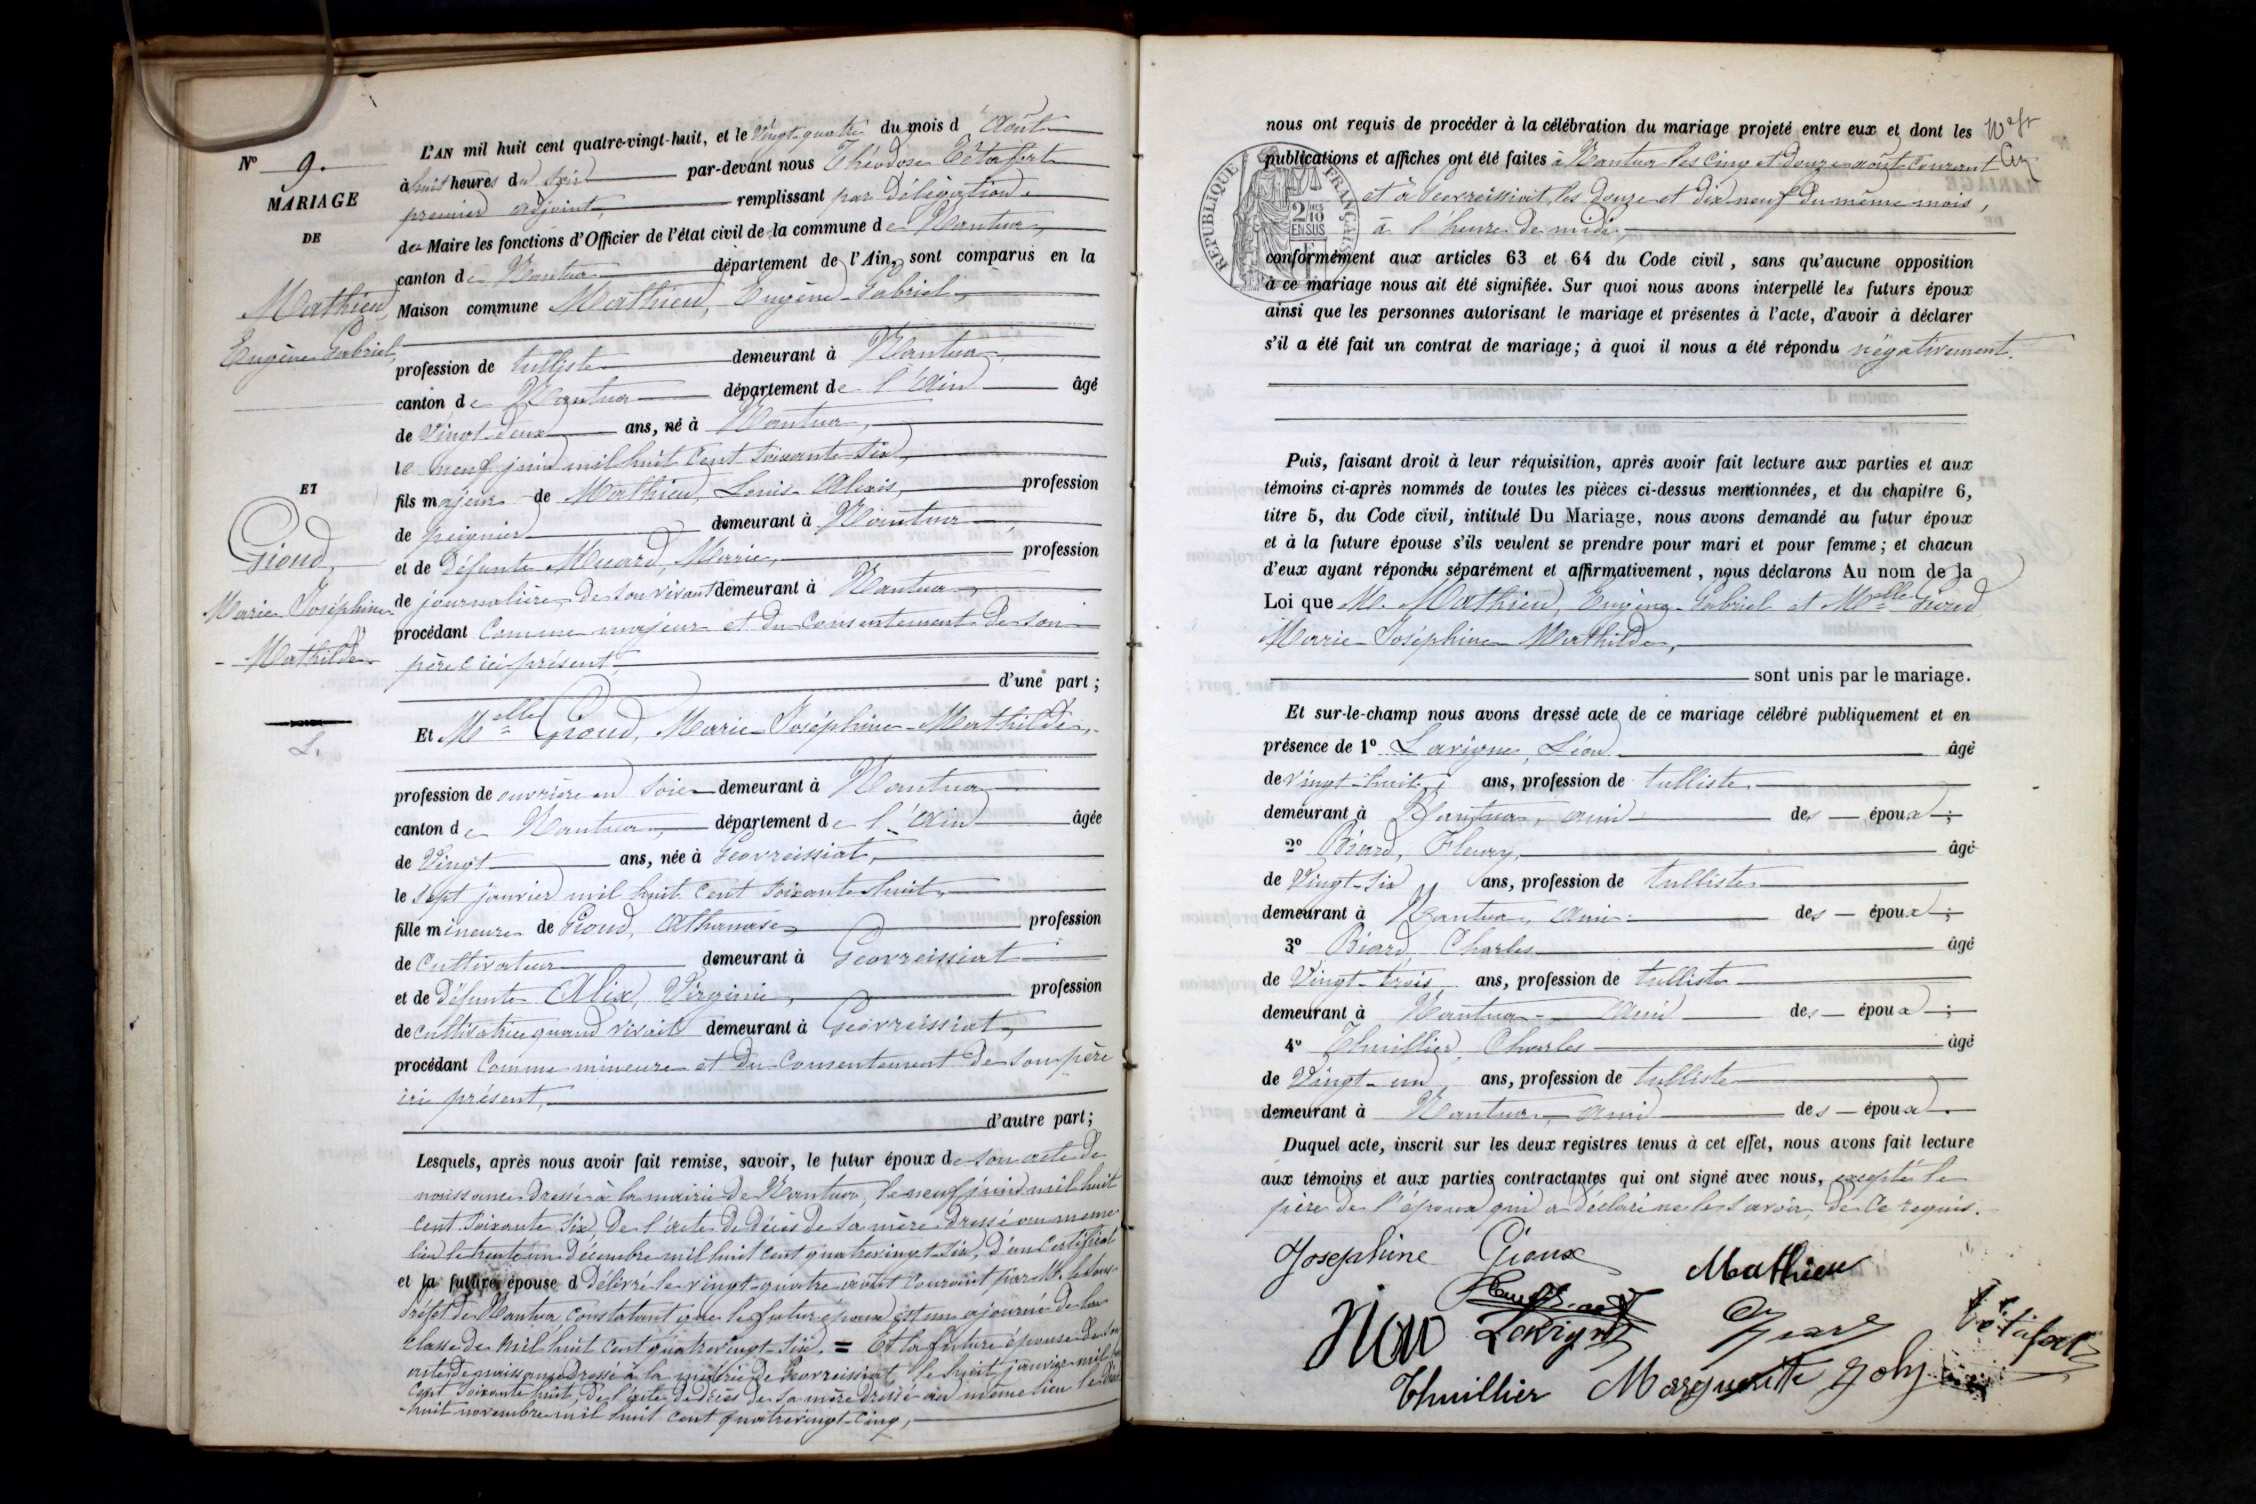 N° 9.
MARIAGE
DE
Mathieu,
Eugène Gabriel
ET
Gioud,
Marie Joséphine
Mathilde
L'AN mil huit cent quatre-vingt-huit, et le vingt quatre du mois d'Août
à huit heures du soir par-devant nous Théodose
premier adjoint, remplissant par délégation
des Maire les fonctions d'Officier de l'état civil de la commune de Nantua,
canton de Nantua département de l'Ain, sont comparus en la
Maison commune Mathieu, Eugène Gabriel,
profession de tulliste demeurant à Nantua,
canton de Nantua département de l'Ain âgé
de vingt-deux ans, né à Nantua,
le neuf juin mil huit cent soixante-six,
fils majeur de Mathieu, Louis Alexis, profession
de peignier demeurant à Nantua,
et de défunte Muard, Marie, profession
de journalière de son vivant demeurant à Nantua,
procédant comme majeur et du consentement de son
père ici présent,
d'une part;
Et Melle Gioud, Marie Joséphine Mathilde,
profession de ouvrière en soie demeurant à Nantua
canton de Nantua, département de l'Ain âgée
de vingt ans, née à Géovreissiat,
le sept janvier mil huit cent soixante huit,
fille mineure de Gioud, Athanase, profession
de cultivateur demeurant à Géovreissiat
et de défunte Alix, Virginie, profession
de cultivatrice quand vivait demeurant à Géovreissiat,
procédant comme mineure et du consentement de son père
ici présent,
d'autre part;
Lesquels, après nous avoir fait remise, savoir, le futur époux de son acte de
naissance dressé à la mairie de Nantua, le neuf juin mil huit
cent soixante six, de l'acte de décès de sa mère dressé au même
lieu le trente un décembre mil huit cent quatrevingt-six, d'un certificat
et la future épouse d délivré le vingt-quatre août courant par Mr le Sous-
Préfet de Nantua constatant que le futur époux est un ajourné de la
classe de mil huit cent quatrevingt-six. = Et la future épouse de son
acte de naissance dressé à la mairie de Géovreissiat, le huit janvier mil huit
cent soixante huit, de l'acte de décès de sa mère dressé au même lieu le dix
huit novembre mil huit cent quatrevingt-cinq,
nous ont requis de procéder à la célébration du mariage projeté entre eux et dont les
publications et affiches ont été faites à Nantua les cinq et douze août courant
et à Géovreissiat, les douze et dix neuf du même mois,
à l'heure de midi,
RÉPUBLIQUE FRANÇAISE
2/10
EN SUS
conformément aux articles 63 et 64 du Code civil, sans qu'aucune opposition
à ce mariage nous ait été signifiée. Sur quoi nous avons interpellé les futurs époux
ainsi que les personnes autorisant le mariage et présentes à l'acte, d'avoir à déclarer
s'il a été fait un contrat de mariage; à quoi il nous a été répondu négativement.
Puis, faisant droit à leur réquisition, après avoir fait lecture aux parties et aux
témoins ci-après nommés de toutes les pièces ci-dessus mentionnées, et du chapitre 6,
titre 5, du Code civil, intitulé Du Mariage, nous avons demandé au futur époux
et à la future épouse s'ils veulent se prendre pour mari et pour femme; et chacun
d'eux ayant répondu séparément et affirmativement, nous déclarons Au nom de la
Loi que M. Mathieu, Eugène Gabriel et Melle Gioud
Marie Joséphine Mathilde,
sont unis par le mariage.
Et sur-le-champ nous avons dressé acte de ce mariage célébré publiquement et en
présence de 1° Lavigne, Léon âgé
de vingt-huit ans, profession de tulliste
demeurant à Nantua, ami des époux;
2° Béard, Fleury, âgé
de vingt-six ans, profession de tulliste
demeurant à Nantua, ami des époux;
3° Béard, Charles âgé
de vingt-trois ans, profession de tulliste
demeurant à Nantua ami des époux;
4° Thuillier, Charles âgé
de vingt-un ans, profession de tulliste
demeurant à Nantua, ami des époux.
Duquel acte, inscrit sur les deux registres tenus à cet effet, nous avons fait lecture
aux témoins et aux parties contractantes qui ont signé avec nous, excepté le
père de l'époux qui a déclaré ne le savoir, de ce requis.
Josephine Gioux Mathieu
Lavigne
Thuillier Marguerite Joly